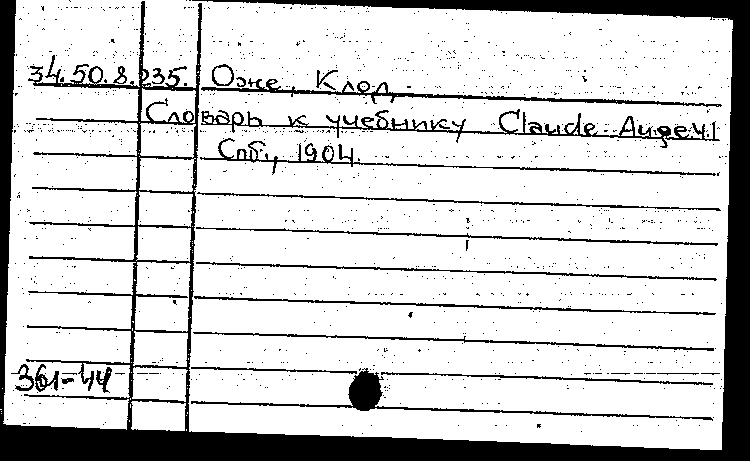 34.50.8.235. Оже, Клод.
Словарь к учебнику Claude Auge ч.1
Спб., 1904.
361-44